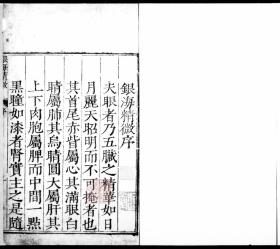 銀海精微序
夫眼者乃五臟之精華如日
月麗天昭明而不可掩者也
其首尾赤眥屬心其滿眼白
睛屬肺其烏睛圓大屬肝其
上下肉胞屬脾而中間一點
黑瞳如漆者腎實主之是隨